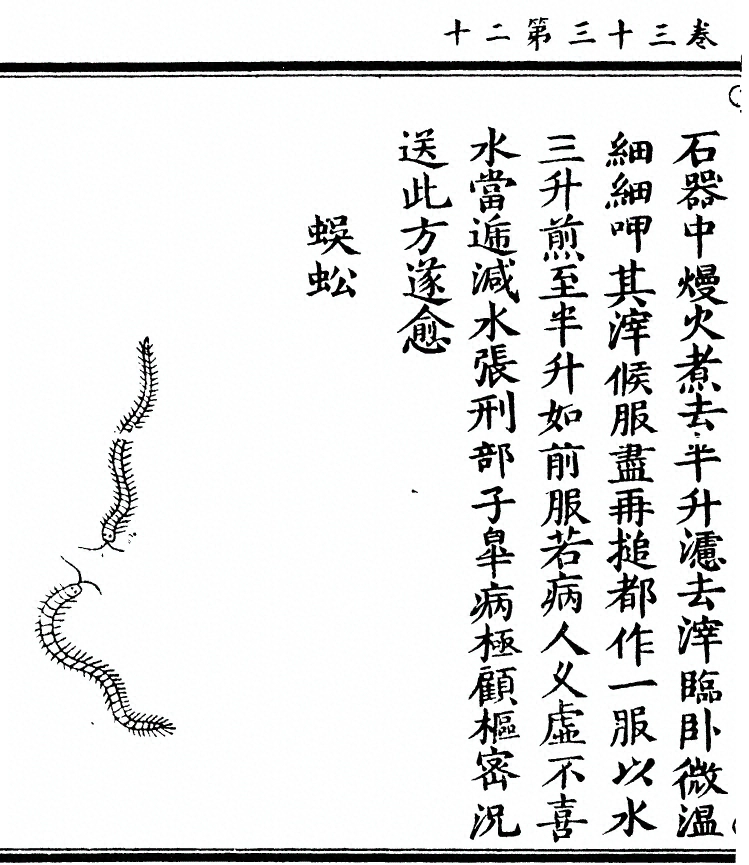 卷三十三第二十
石器中熳火煮去半升濾去滓臨卧微溫
細細呷其滓候服盡再搥都作一服以水
三升煎至半升如前服若病人乆虛不喜
水當遞減水張刑部子臯病極顧樞密況
送此方遂愈
蜈蚣